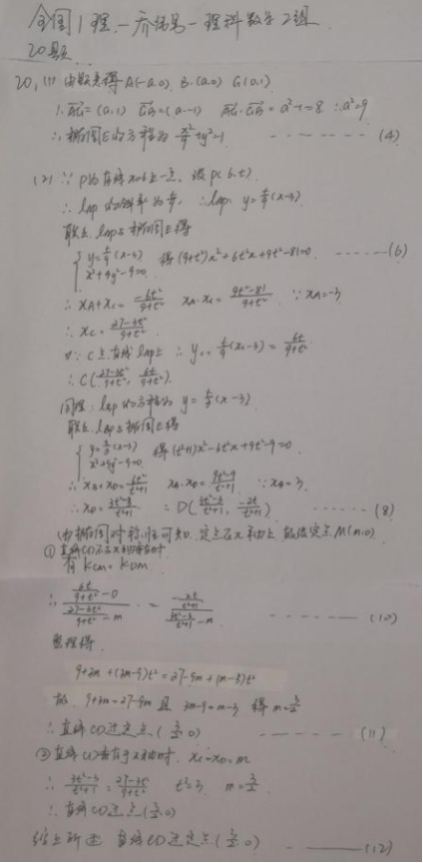 全国1理-乔伟男-理科数学2组
20题
20, (1) 由题意得 A(-a,0) B(a,0) G(0,1)
∴ AG=(a,1) GB=(a,-1) AG·GB=a²-1=8 ∴a²=9
∴椭圆E的方程为 x²/9+y²=1 ------ (4)
(2) ∵P为直线x=6上一点, 设P(6,t)
∴ lAP的斜率为 t/9, ∴lAP: y=t/9(x+3)
联立 lAP与椭圆E得
{ y=t/9(x+3)
x²+9y²-9=0 得(9+t²)x²+6t²x+9t²-81=0 ------ (6)
∴ xA+xC=-6t²/9+t² xA·xC=9t²-81/9+t² ∵xA=-3
∴ xC=27-3t²/9+t²
又∵C在直线lAP上 ∴ yC=t/9(xC+3)=6t/9+t²
∴ C(27-3t²/9+t², 6t/9+t²)
同理: lBP的方程为 y=t/3(x-3)
联立 lBP与椭圆E得
{ y=t/3(x-3)
x²+9y²-9=0 得(t²+1)x²-6t²x+9t²-9=0
∴ xB+xD=6t²/t²+1 xB·xD=9t²-9/t²+1 ∵xB=3
∴ xD=3t²-3/t²+1 ∴ D(3t²-3/t²+1, -2t/t²+1) ------ (8)
由椭圆对称性可知, 定点在x轴上, 故设定点M(m,0)
①直线CD不与x轴垂直时
有 KCM=KDM
∴ (6t/9+t²-0)/(27-3t²/9+t²-m) = (-2t/t²+1)/(3t²-3/t²+1-m) ------ (10)
整理得
9+3m+(3m-9)t²=27-9m+(m-3)t²
故 9+3m=27-9m 且 3m-9=m-3 得 m=3/2
∴直线CD过定点(3/2,0) ------ (11)
②直线CD垂直于x轴时, xC=xD=m
∴ 3t²-3/t²+1=27-3t²/9+t² t²=3 m=3/2
∴直线CD过点(3/2,0)
综上所述 直线CD过定点(3/2,0) ------ (12)